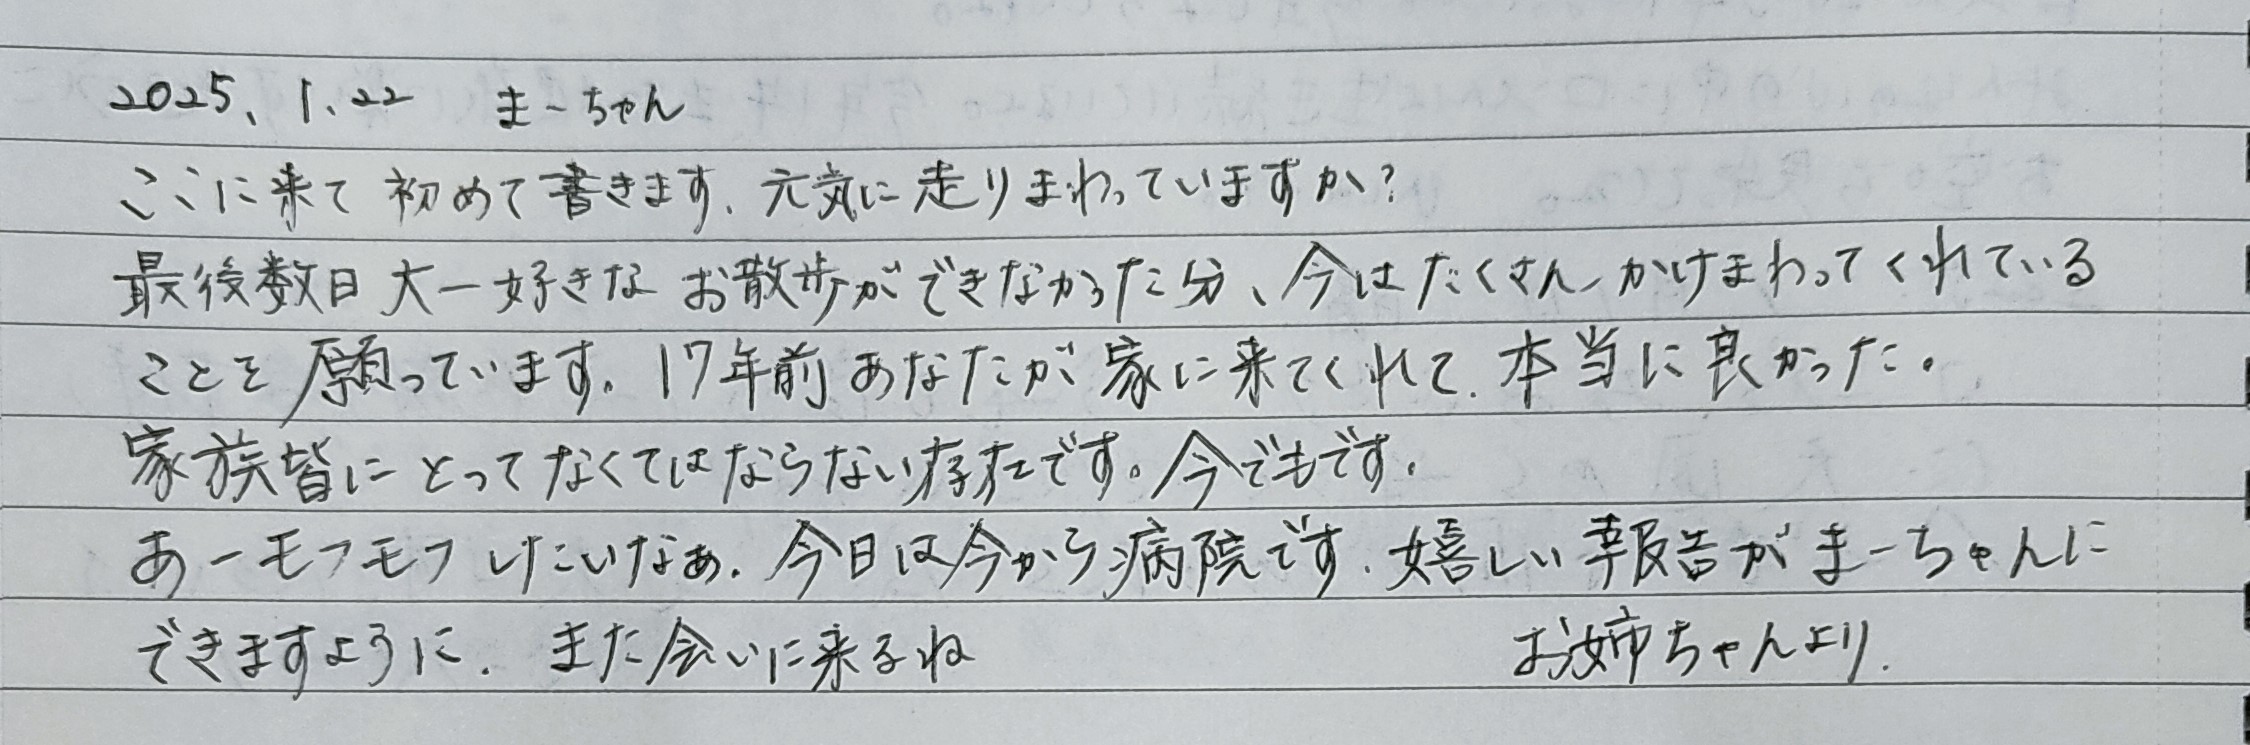 2025、1、22　まーちゃん
ここに来て初めて書きます、元気に走りまわっていますか?
最後数日大一好きなお散歩ができなかった分、今はたくさんかけまわってくれている
ことを願っています。17年前あなたが家に来てくれて、本当に良かった。
家族皆にとってなくてはならない存在です。今でもです。
あーモフモフしたいなぁ。今日は今から病院です、嬉しい報告がまーちゃんに
できますように、また会いに来るね　お姉ちゃんより、